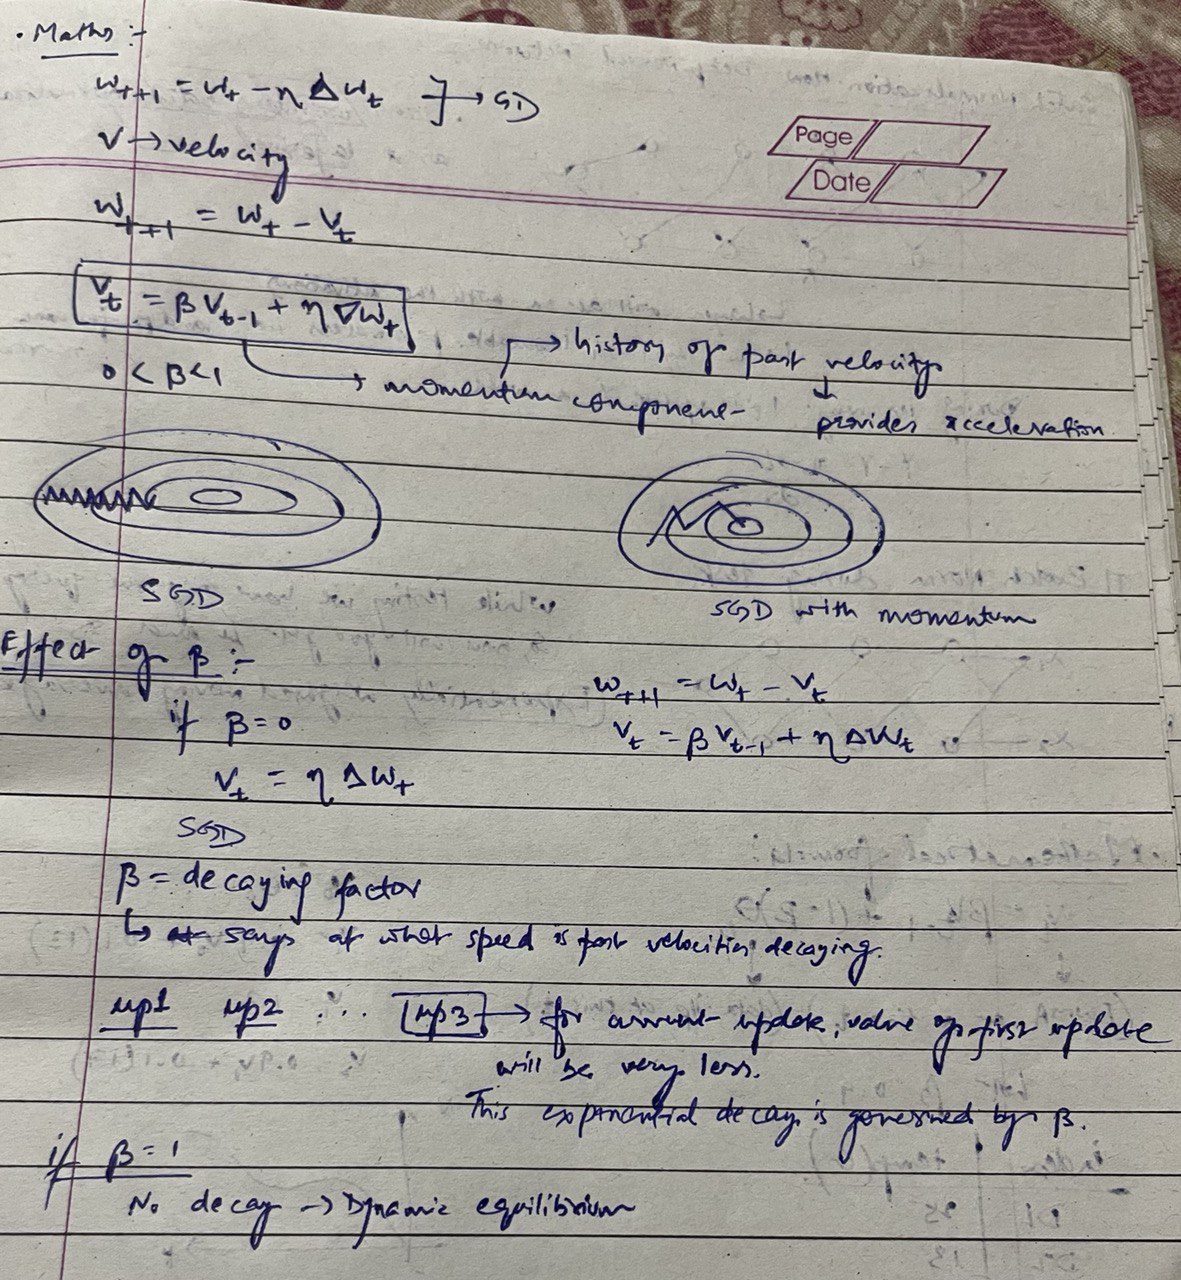 . Maths :-
w_{t+1} = w_t - η Δw_t ] → GD
Page
V → velocity
Date
w_{t+1} = w_t - v_t
v_t = β v_{t-1} + η ∇w_t
→ history of past velocity
0 < β < 1 → momentum component
↓ provides acceleration
SGD
SGD with momentum
Effect of β :-
if β = 0
w_{t+1} = w_t - v_t
v_t = β v_{t-1} + η Δw_t
v_t = η Δw_t
SGD
β = decaying factor
↳ says at what speed is past velocities decaying.
up1 up2 ... up3 → for current update, value of first update
will be very less.
This exponential decay is governed by β.
if β = 1
No decay → Dynamic equilibrium